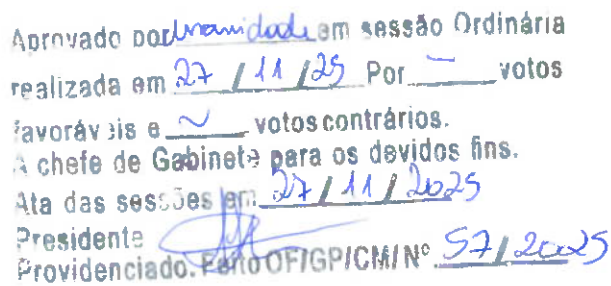 Aprovado por Unanimidade em sessão Ordinária
realizada em 27 / 11 / 25 Por — votos
favoráveis e ~ votos contrários.
A chefe de Gabinete para os devidos fins.
Ata das sessões em 27 / 11 / 2025
Presidente
Providenciado. Feito OF/GP/CM/Nº 57 / 2025